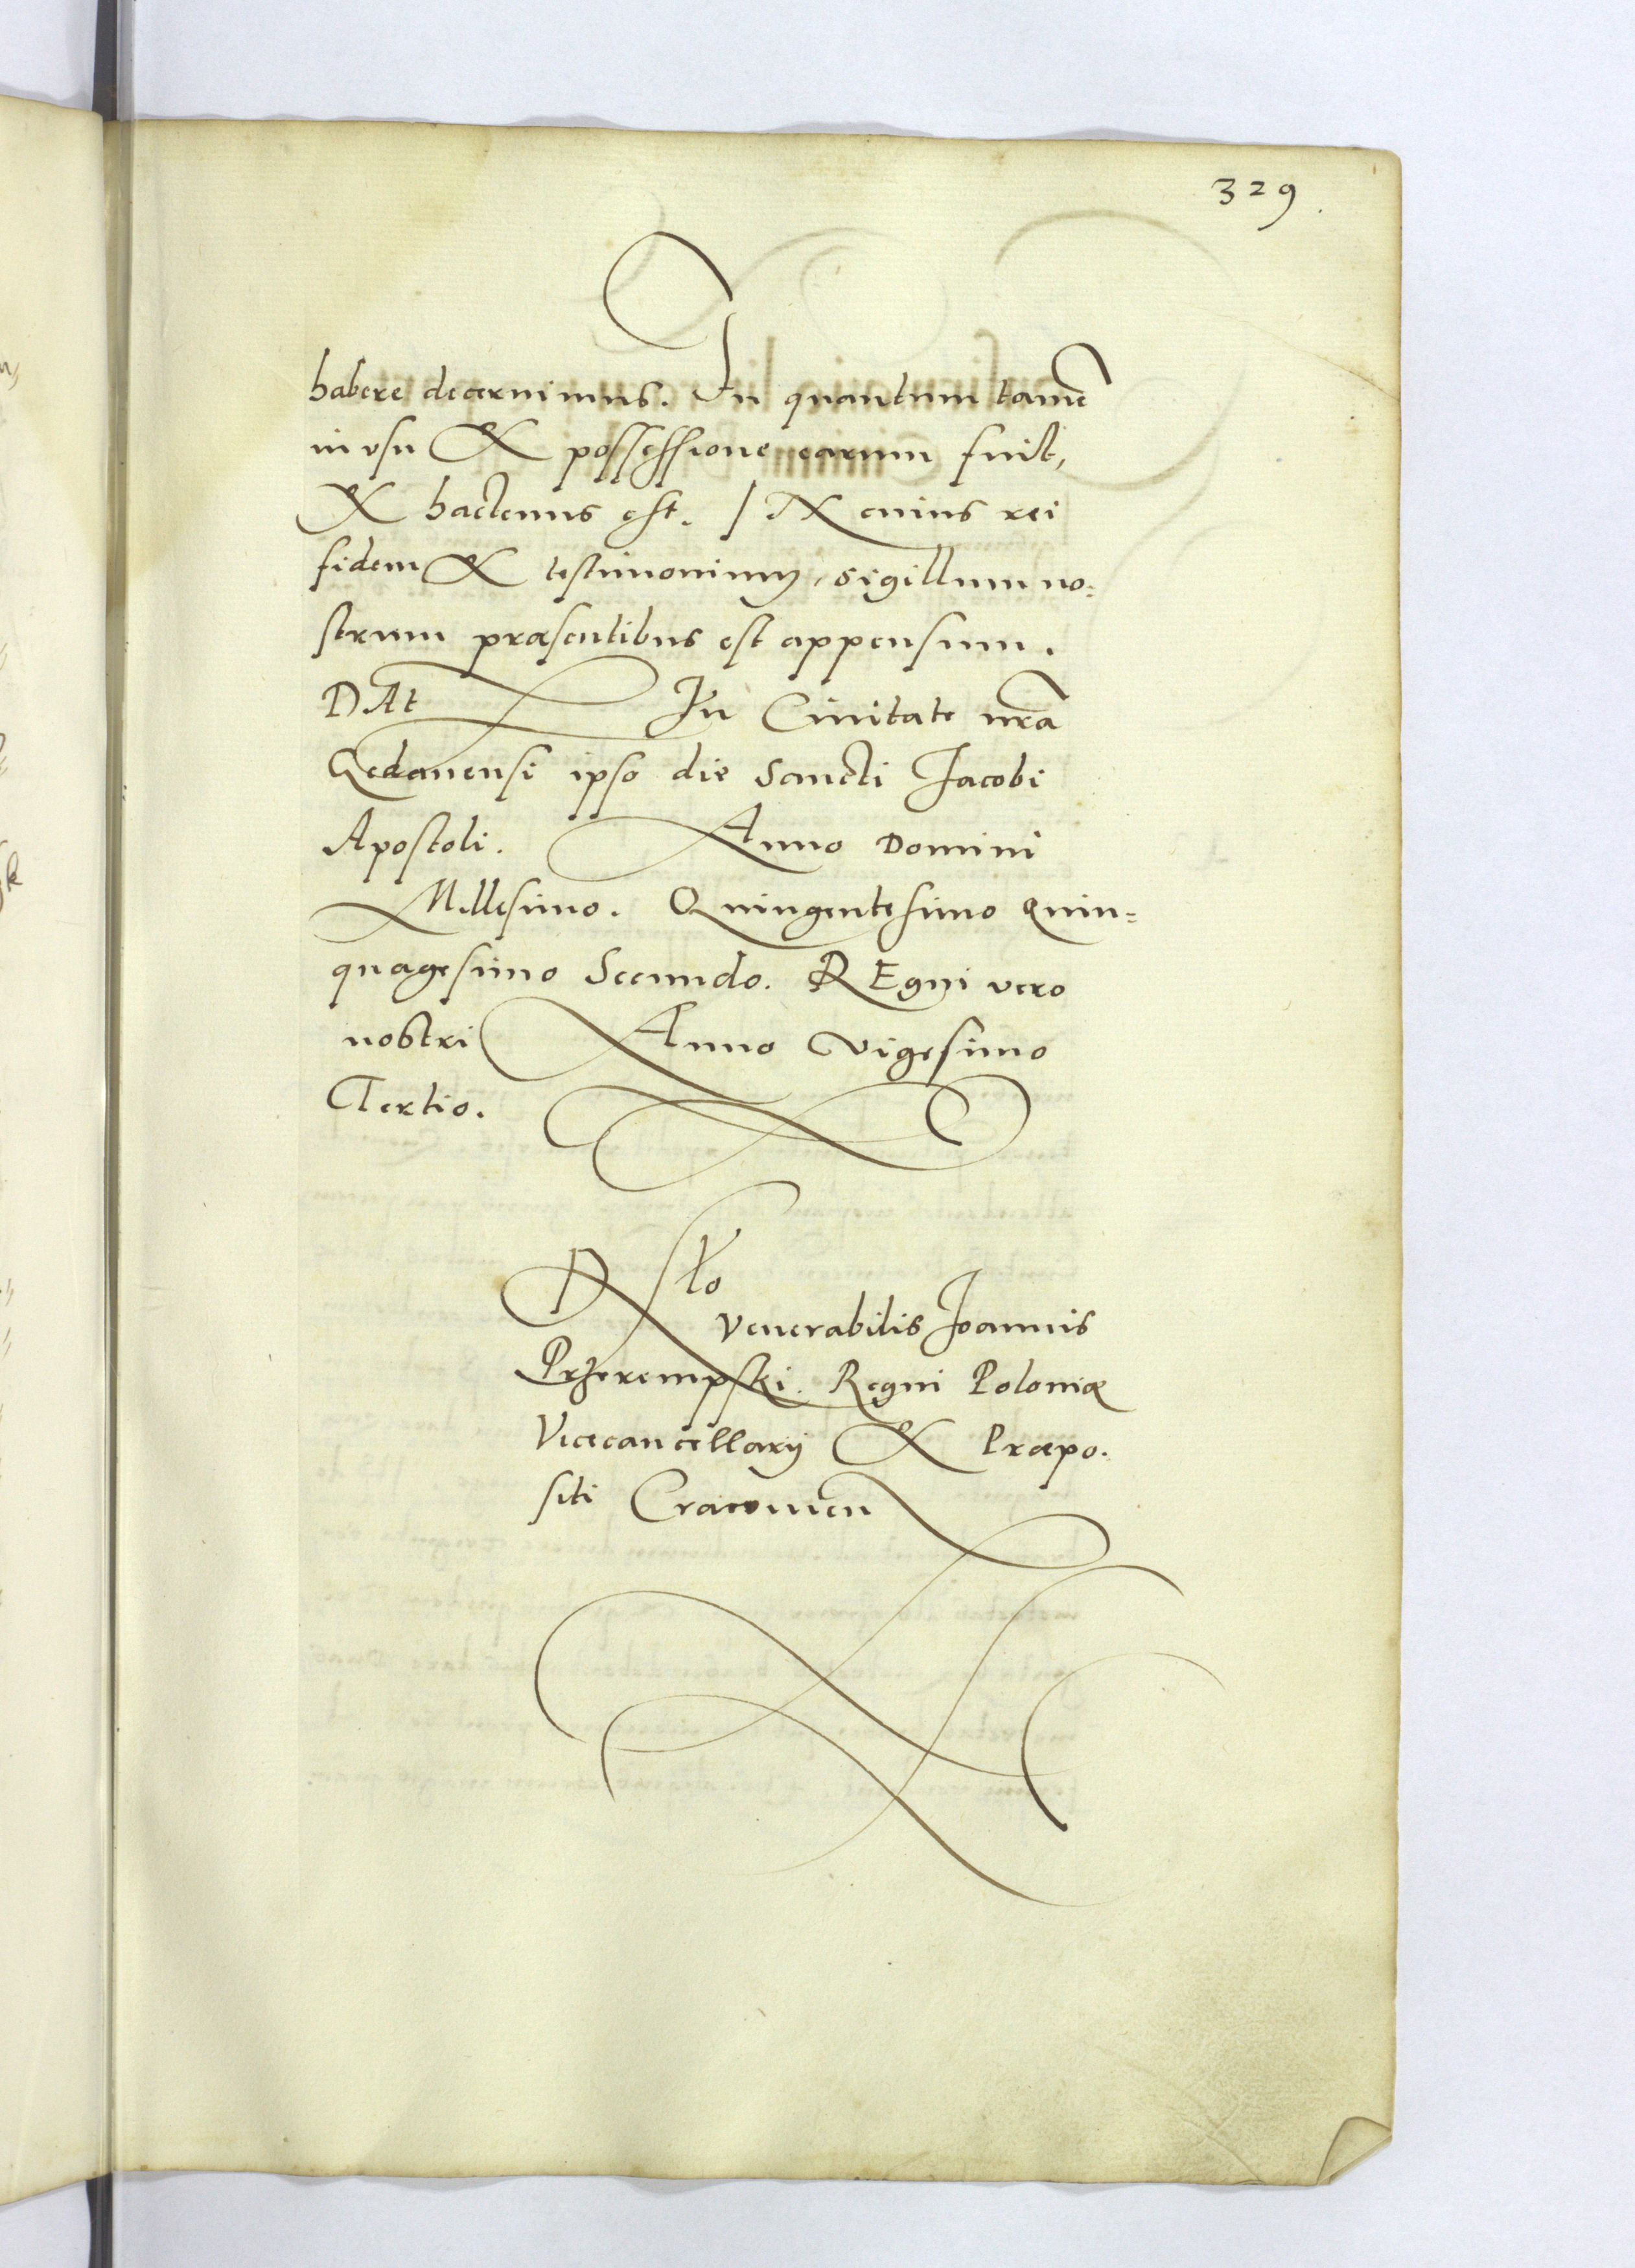 329.
habere decernimus. In quantum tamē
in vsu & possessione earum fuit,
& hactenus est. / IN cuius rei
fidem & testimonium, sigillum no=
strum præsentibus est appensum.
DAt In Ciuitate nr̃a
Gedanensi ipso die Sancti Jacobi
Apostoli. Anno Domini
Millesimo. Quingentesimo Quin=
quagesimo Secundo. REgni vero
nostri Anno vigesimo
Tertio.
Rło
Venerabilis Joannis
Przerempski. Regni Poloniæ
Vicecancellarij & Præpo.
siti Cracouien